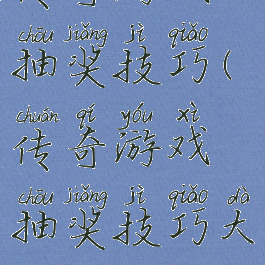 chōu jiǎng jì qiǎo
抽奖技巧(
chuán qí yóu xì
传奇游戏
chōu jiǎng jì qiǎo dà
抽奖技巧大